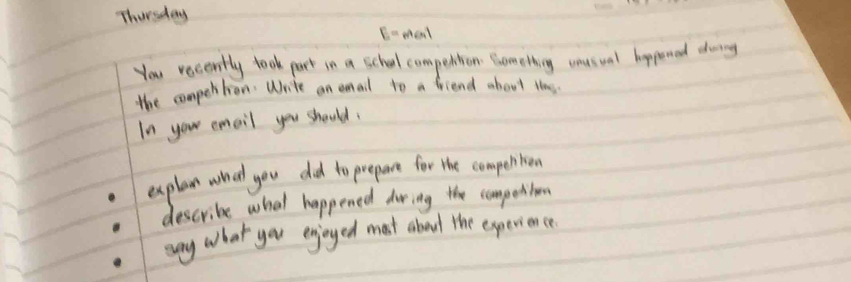 Thursday
E-mail
You recently took part in a school competition. Something unusual happened during
the competition. Write an email to a friend about this.
In your email you should:
• explain what you did to prepare for the competition
• describe what happened during the competition
• say what you enjoyed most about the experience.